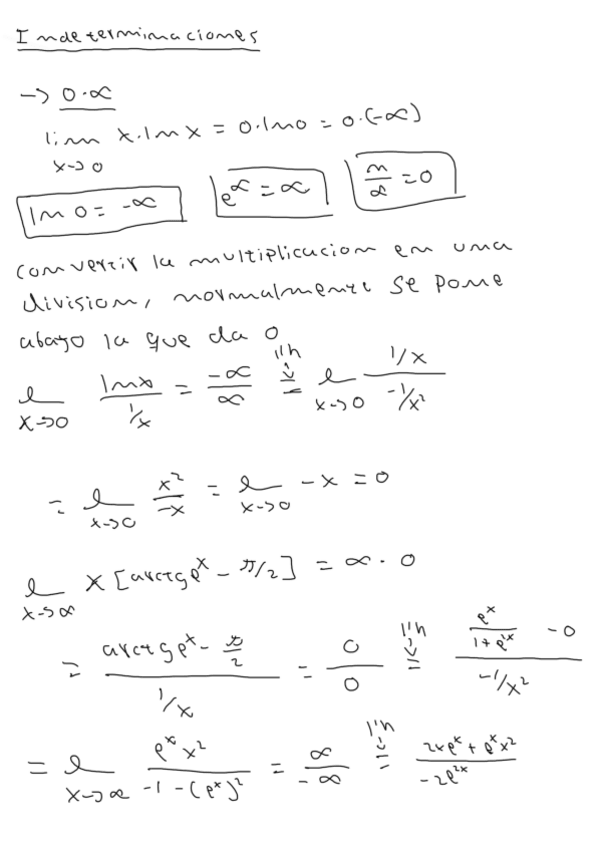 Indeterminaciones
→ 0·∞
lim x→0 x·ln x = 0·ln 0 = 0·(-∞)
ln 0 = -∞ e^∞ = ∞ n/∞ = 0
convertir la multiplicacion en una
division, normalmente se pone
abajo la que da 0
l x→0 lnx / (1/x) = -∞/∞ =(l'h) l x→0 (1/x) / (-1/x²)
= l x→0 x²/-x = l x→0 -x = 0
l x→∞ x [arctg e^x - π/2] = ∞·0
= (arctg e^x - π/2) / (1/x) = 0/0 =(l'h) (e^x/(1+e^2x) - 0) / (-1/x²)
= l x→∞ e^x x² / (-1-(e^x)²) = ∞/-∞ =(l'h) (2xe^x + e^x x²) / (-2e^2x)